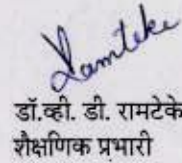 Ramteke
डॉ.व्ही. डी. रामटेके
शैक्षणिक प्रभारी